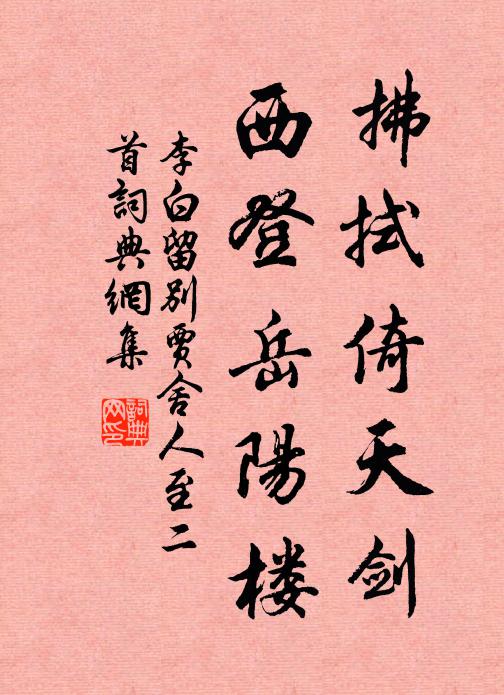 拂拭倚天剑
西登岳陽楼
李白留别賈舍人至二
首詞典網集
詞典
网印